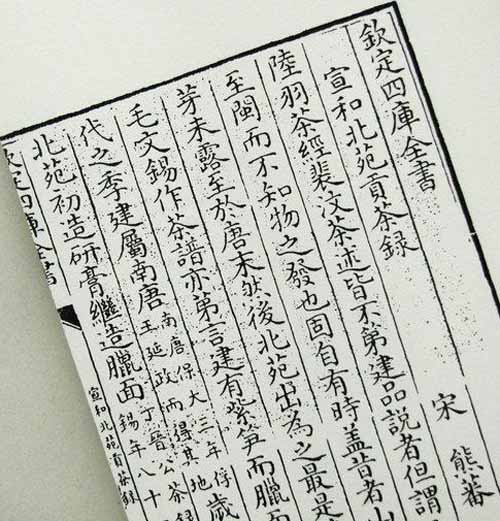 欽定四庫全書
宣和北苑貢茶録 宋 熊蕃
陸羽茶經裴汶茶述皆不第建品説者但謂
至閩而不知物之發也固自有時蓋昔者山
芽未露至於唐末然後北苑出為之最是
毛文錫作茶譜亦第言建有紫筍而臘面
代之季建屬南唐南唐保大三年俘王延政而得其地歲
北苑初造研膏繼造臘面丁晉公茶録錫年八十
定四庫全書 宣和北苑貢茶録